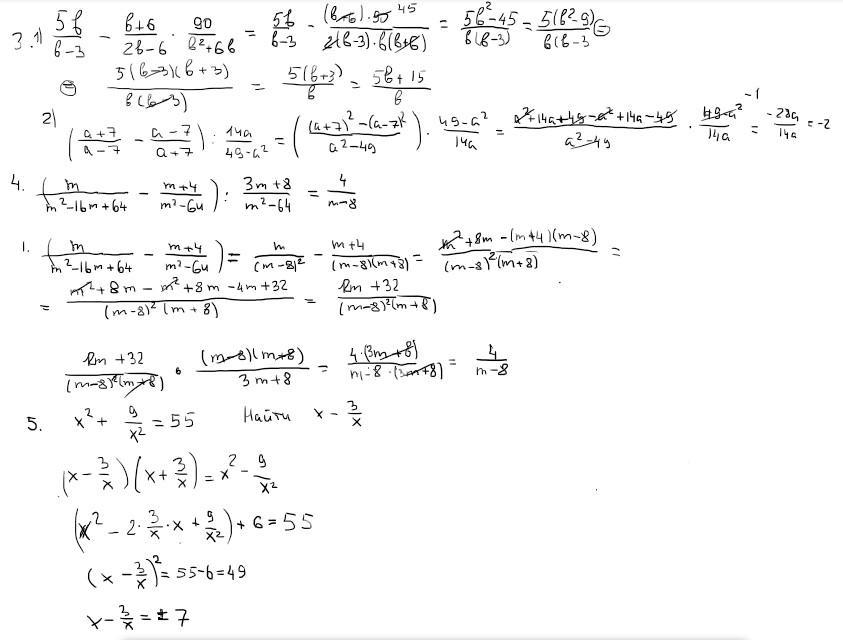 3. 1) 5b/(b-3) - (b+6)/(2b-6) · 90/(b²+6b) = 5b/(b-3) - ((b+6)·90 45)/(2(b-3)·b(b+6)) = (5b²-45)/(b(b-3)) = 5(b²-9)/(b(b-3) ⊜
⊜ 5(b-3)(b+3)/(b(b-3)) = 5(b+3)/b = (5b+15)/b
2) ((a+7)/(a-7) - (a-7)/(a+7)) : 14a/(49-a²) = (((a+7)²-(a-7)²)/(a²-49)) · (49-a²)/14a = (a²+14a+49-a²+14a-49)/(a²-49) · (49-a² -1)/14a = -28a/14a = -2
4. (m/(m²-16m+64) - (m+4)/(m²-64)) : (3m+8)/(m²-64) = 4/(m-8)
1. (m/(m²-16m+64) - (m+4)/(m²-64)) = m/(m-8)² - (m+4)/((m-8)(m+8)) = (m²+8m-(m+4)(m-8))/((m-8)²(m+8)) =
= (m²+8m-m²+8m-4m+32)/((m-8)²(m+8)) = (12m+32)/((m-8)²(m+8))
(12m+32)/((m-8)²(m+8)) · ((m-8)(m+8))/(3m+8) = 4·(3m+8)/(m-8·(3m+8)) = 4/(m-8)
5. x² + 9/x² = 55 Найти x - 3/x
(x - 3/x)(x + 3/x) = x² - 9/x²
(x² - 2·3/x·x + 9/x²) + 6 = 55
(x - 3/x)² = 55-6 = 49
x - 3/x = ±7